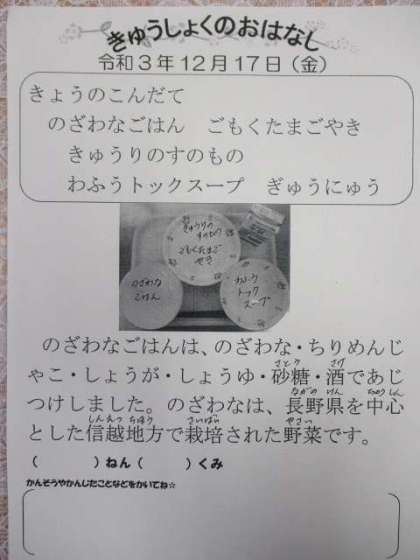 きゅうしょくのおはなし
令和3年12月17日(金)
きょうのこんだて
のざわなごはん ごもくたまごやき
きゅうりのすのもの
わふうトックスープ ぎゅうにゅう
きゅうりの
すのもの
ごもくたまご
やき
のざわな
ごはん
わふう
トック
スープ
のざわなごはんは、のざわな・ちりめんじ
ゃこ・しょうが・しょうゆ・砂糖・酒であじ
さとう さけ
つけしました。のざわなは、長野県を中心
ながの けん ちゅうしん
とした信越地方で栽培された野菜です。
しんえつ ちほう さいばい やさい
( )ねん( )くみ
かんそうやかんじたことなどをかいてね☆